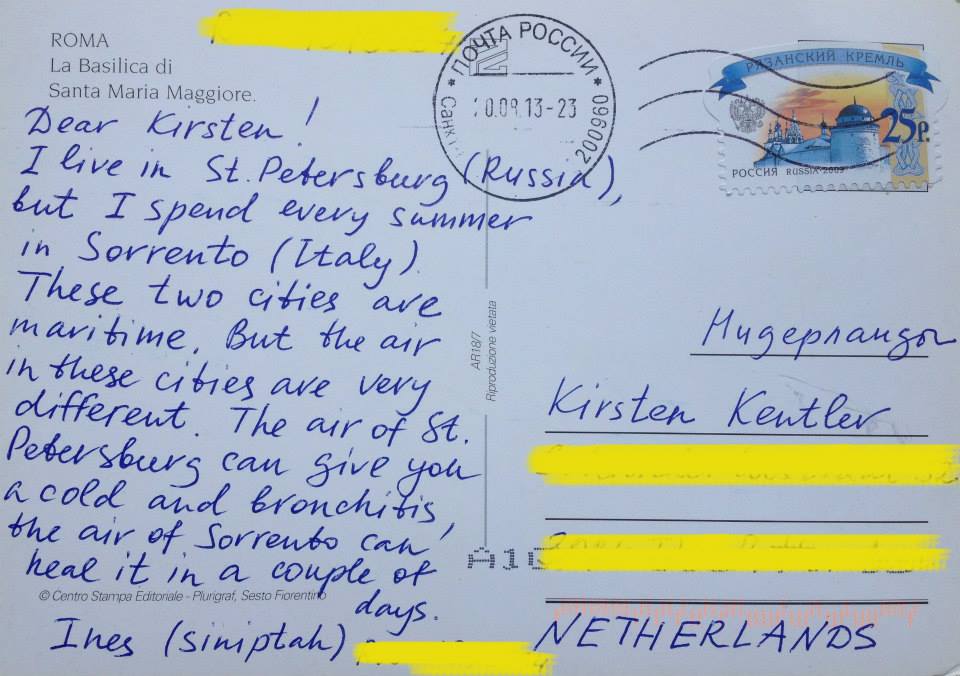 ROMA
La Basilica di
Santa Maria Maggiore.
Dear Kirsten!
I live in St. Petersburg (Russia),
but I spend every summer
in Sorrento (Italy)
These two cities are
maritime. But the air
in these cities are very
different. The air of St.
Petersburg can give you
a cold and bronchitis,
the air of Sorrento can
heal it in a couple of
days.
Ines (siniptah)
© Centro Stampa Editoriale - Plurigraf, Sesto Fiorentino
AR18/7
Riproduzione vietata
ПОЧТА РОССИИ
20.09.13-23
200960
РЯЗАНСКИЙ КРЕМЛЬ
25р.
РОССИЯ RUSSIA 2009
Нидерланды
Kirsten Kentler
NETHERLANDS